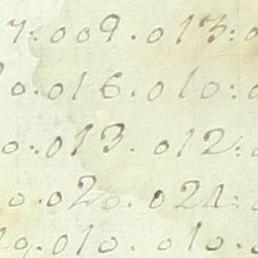 7:.009.013:0
0.016.010:0
0.:013.012:
0.020.021:
19.010.010.